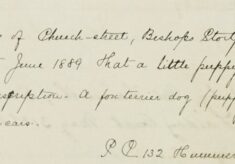 of Church-street, Bishops Stort
June 1889 That a little puppy
scription. A fox terrier dog (pupp
ears.
P C 132 Hummer